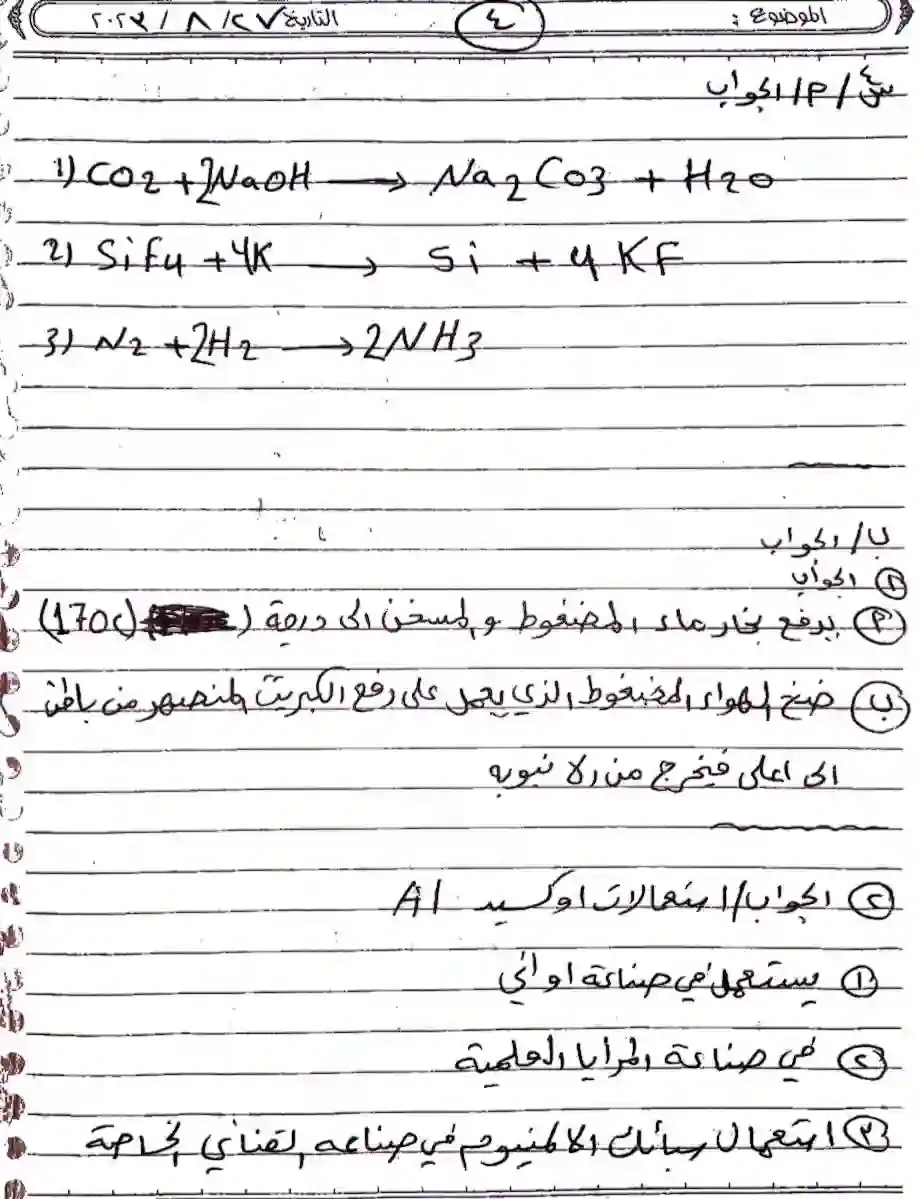 الموضوع : ٤ التاريخ ٢٧ / ٨ / ٢٠٢٣
س٤ / P / الجواب
1) CO2 + 2NaOH → Na2CO3 + H2O
2) SiF4 + 4K → Si + 4KF
3) N2 + 2H2 → 2NH3
ب / الجواب
① الجواب
(P) يدفع بخار ماء المضغوط والمسخن الى درجة ( (170c)
(ب) ضخ الهواء المضغوط الذي يعمل على رفع الكبريت المنصهر من باطن
الى اعلى فيخرج من الانبوبه
② الجواب / استعمالات اوكسيد Al
① يستعمل في صناعة اواني
② في صناعة المرايا العلمية
③ استعمال سبائك الالمنيوم في صناعه القناني الخاصة